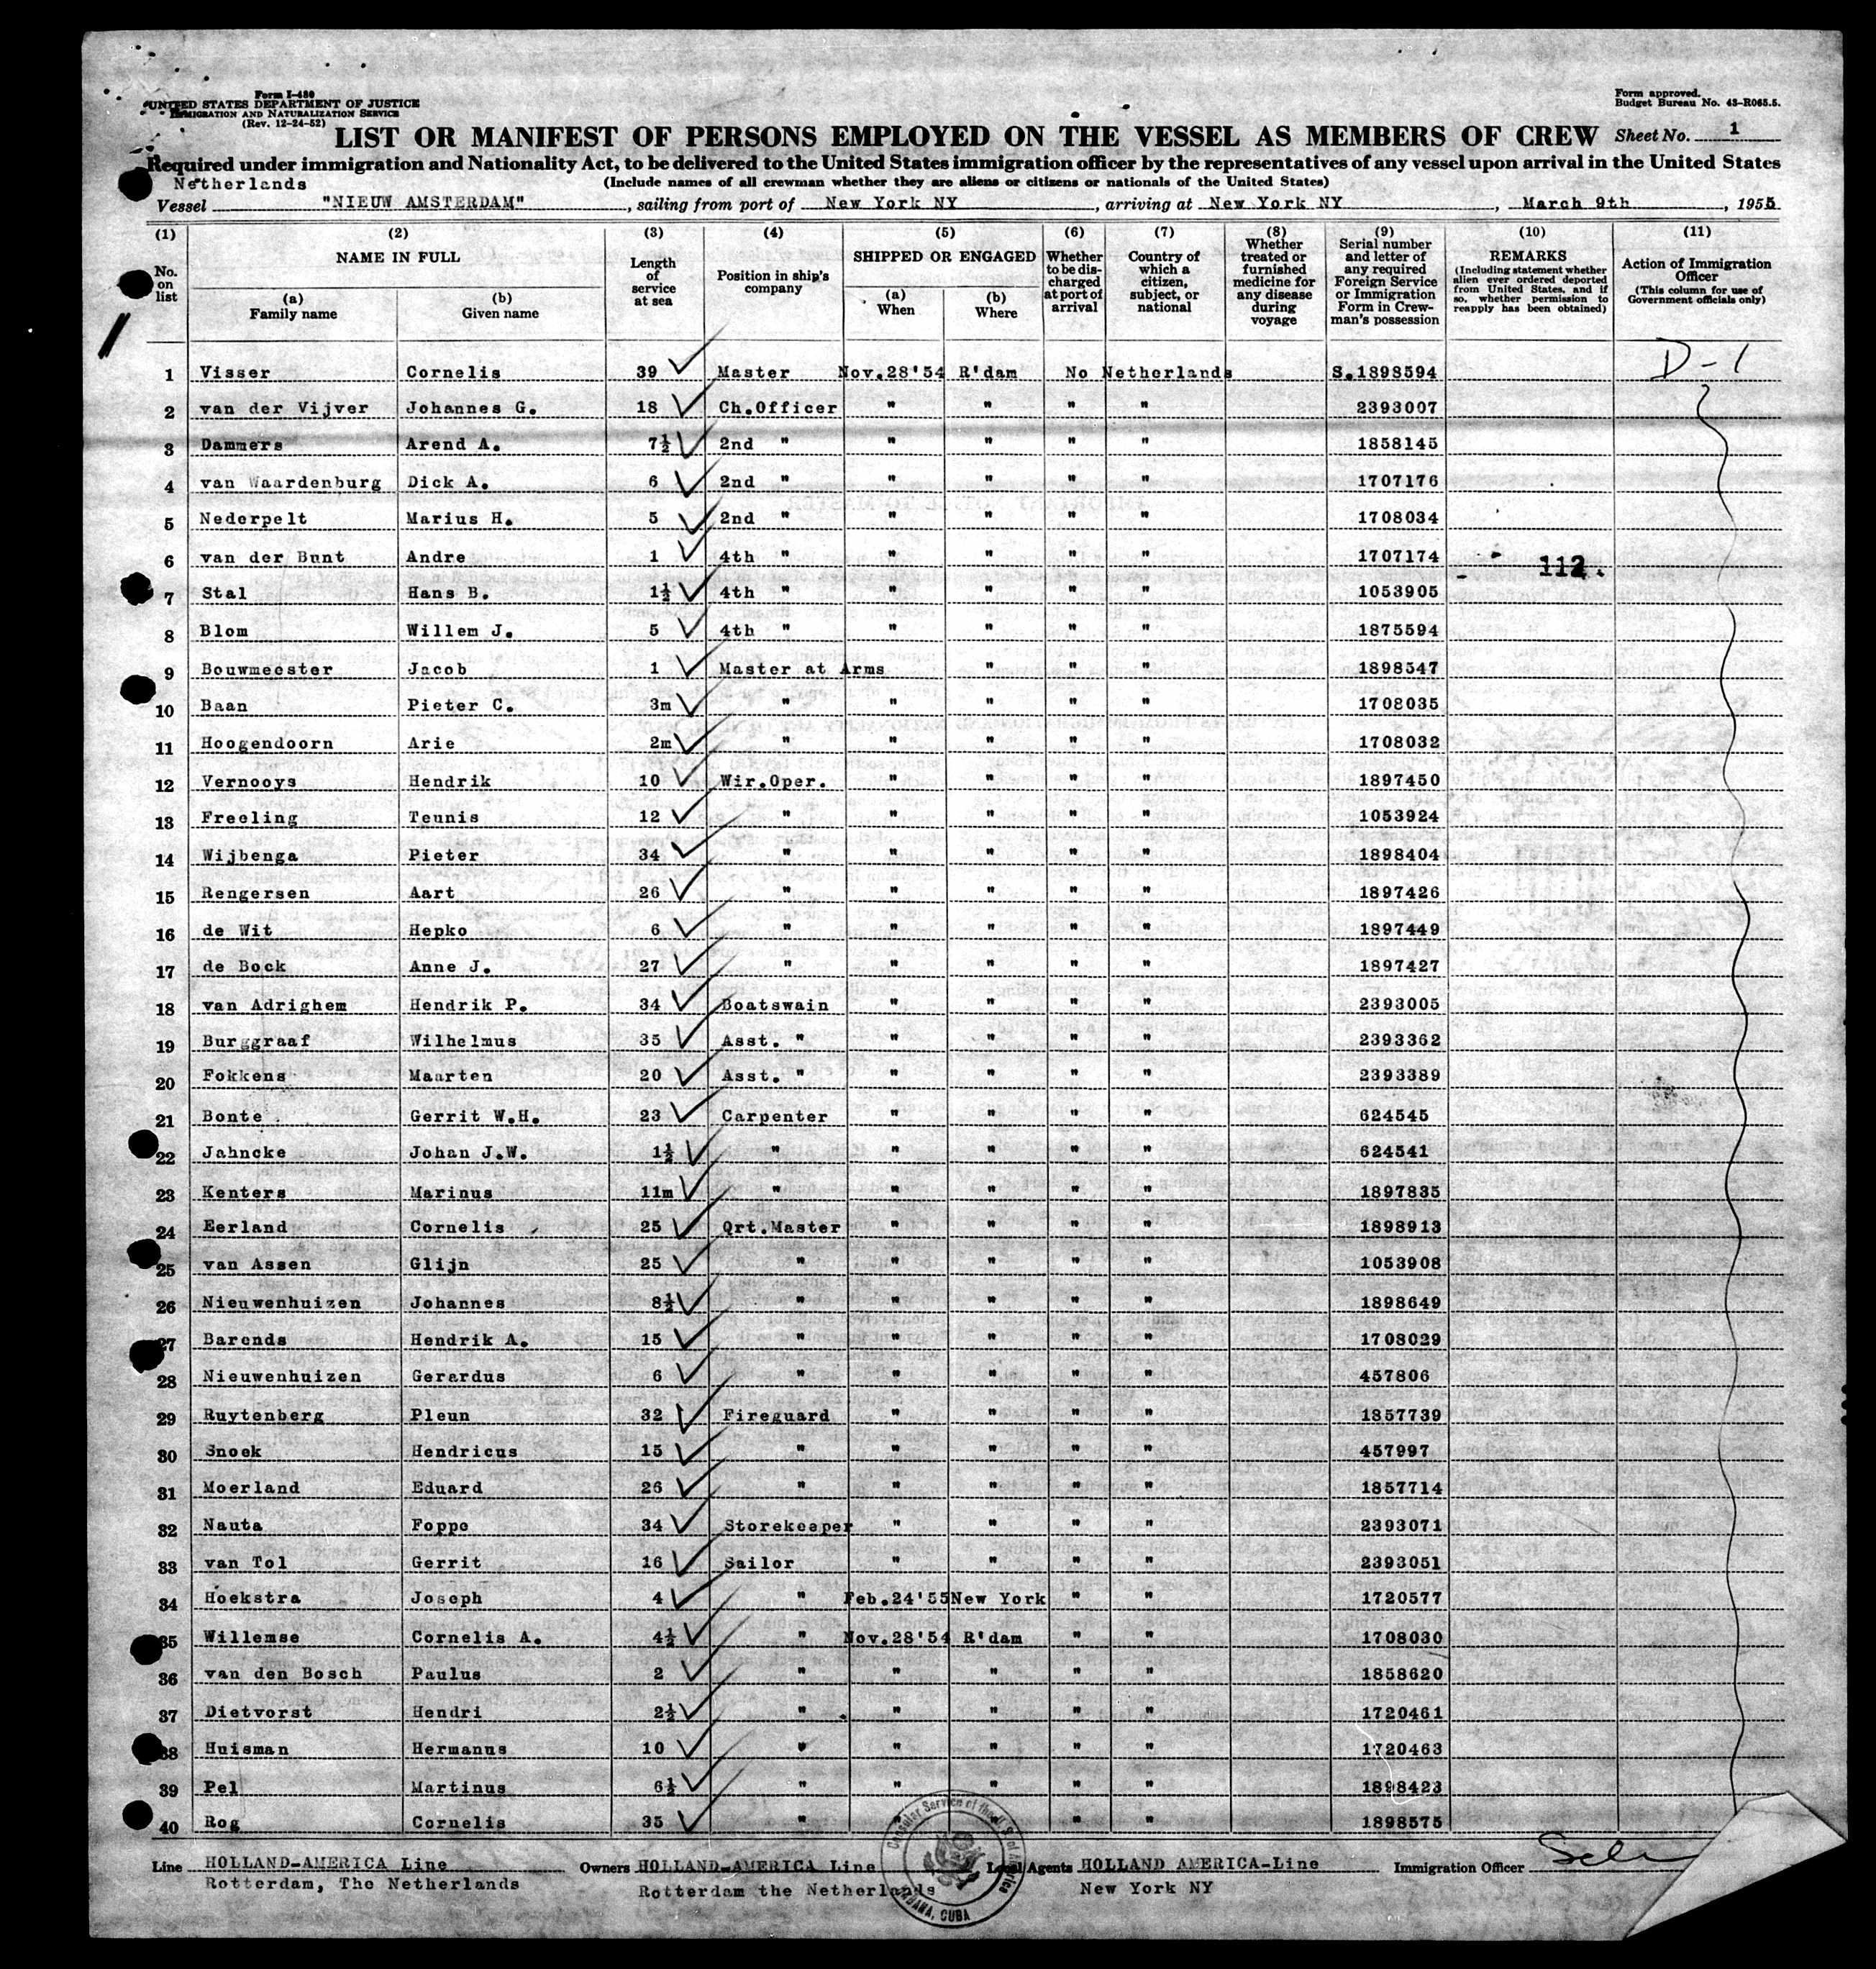 Form I-480
UNITED STATES DEPARTMENT OF JUSTICE
IMMIGRATION AND NATURALIZATION SERVICE
(Rev. 12-24-52)
Form approved.
Budget Bureau No. 43-R065.5.
LIST OR MANIFEST OF PERSONS EMPLOYED ON THE VESSEL AS MEMBERS OF CREW Sheet No. 1
Required under immigration and Nationality Act, to be delivered to the United States immigration officer by the representatives of any vessel upon arrival in the United States
Netherlands (Include names of all crewman whether they are aliens or citizens or nationals of the United States)
Vessel "NIEUW AMSTERDAM", sailing from port of New York NY, arriving at New York NY, March 9th, 1955
(1) (2) (3) (4) (5) (6) (7) (8) (9) (10) (11)
No. on list
NAME IN FULL
(a) Family name
(b) Given name
Length of service at sea
Position in ship's company
SHIPPED OR ENGAGED
(a) When
(b) Where
Whether to be discharged at port of arrival
Country of which a citizen, subject, or national
Whether treated or furnished medicine for any disease during voyage
Serial number and letter of any required Foreign Service or Immigration Form in Crewman's possession
REMARKS
(Including statement whether alien ever ordered deported from United States, and if so, whether permission to reapply has been obtained)
Action of Immigration Officer
(This column for use of Government officials only)
1 Visser Cornelis 39 Master Nov.28'54 R'dam No Netherlands S.1898594 D-1
2 van der Vijver Johannes G. 18 Ch.Officer " " " " 2393007
3 Dammers Arend A. 7½ 2nd " " " " " 1858145
4 van Waardenburg Dick A. 6 2nd " " " " " 1707176
5 Nederpelt Marius H. 5 2nd " " " " " 1708034
6 van der Bunt Andre 1 4th " " " " " 1707174
112.
7 Stal Hans B. 1½ 4th " " " " " 1053905
8 Blom Willem J. 5 4th " " " " " 1875594
9 Bouwmeester Jacob 1 Master at Arms " " " 1898547
10 Baan Pieter C. 3m " " " " " 1708035
11 Hoogendoorn Arie 2m " " " " " 1708032
12 Vernooys Hendrik 10 Wir.Oper. " " " " 1897450
13 Freeling Teunis 12 " " " " " 1053924
14 Wijbenga Pieter 34 " " " " " 1898404
15 Rengersen Aart 26 " " " " " 1897426
16 de Wit Hepko 6 " " " " " 1897449
17 de Bock Anne J. 27 " " " " " 1897427
18 van Adrighem Hendrik P. 34 Boatswain " " " " 2393005
19 Burggraaf Wilhelmus 35 Asst. " " " " " 2393362
20 Fokkens Maarten 20 Asst. " " " " " 2393389
21 Bonte Gerrit W.H. 23 Carpenter " " " " 624545
22 Jahncke Johan J.W. 1½ " " " " " 624541
23 Kenters Marinus 11m " " " " " 1897835
24 Eerland Cornelis 25 Qrt.Master " " " " 1898913
25 van Assen Glijn 25 " " " " " 1053908
26 Nieuwenhuizen Johannes 8½ " " " " " 1898649
27 Barends Hendrik A. 15 " " " " " 1708029
28 Nieuwenhuizen Gerardus 6 " " " " " 457806
29 Ruytenberg Pleun 32 Fireguard " " " " 1857739
30 Snoek Hendricus 15 " " " " " 457997
31 Moerland Eduard 26 " " " " " 1857714
32 Nauta Foppe 34 Storekeeper " " " " 2393071
33 van Tol Gerrit 16 Sailor " " " " 2393051
34 Hoekstra Joseph 4 " Feb.24'55 New York " " 1720577
35 Willemse Cornelis A. 4½ " Nov.28'54 R'dam " " 1708030
36 van den Bosch Paulus 2 " " " " " 1858620
37 Dietvorst Hendri 2½ " " " " " 1720461
38 Huisman Hermanus 10 " " " " " 1720463
39 Pel Martinus 6½ " " " " " 1898423
40 Rog Cornelis 35 " " " " " 1898575
Line HOLLAND-AMERICA Line Owners HOLLAND-AMERICA Line Local Agents HOLLAND AMERICA-Line Immigration Officer
Rotterdam, The Netherlands Rotterdam the Netherlands New York NY
Consular Service of the U.S. of America
HABANA, CUBA